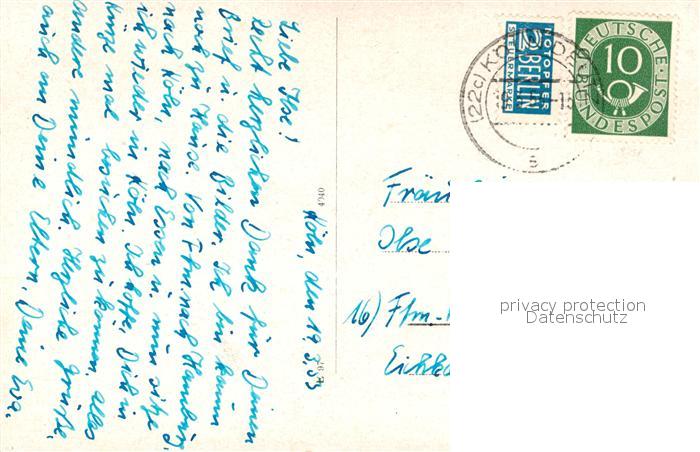 Köln, den 19.3.53
Liebe Ilse!
Recht herzlichen Dank für Deinen
Brief u. die Bilder. Ich bin kaum
noch zu Hause. Von Ffm nach Hamburg,
nach Köln, nach Essen u. nun sitze
ich wieder in Köln. Ich hoffe, Dich in
Kürze mal besuchen zu können, alles
andere mündlich. Herzliche Grüße,
auch an Deine Eltern, Deine Eva.
4940
NOTOPFER
2 BERLIN
STEUERMARKE
DEUTSCHE
10
BUNDESPOST
(22c) KÖLN
s
Fräu
Ilse
16) Ffm.-
Eichka
privacy protection
Datenschutz